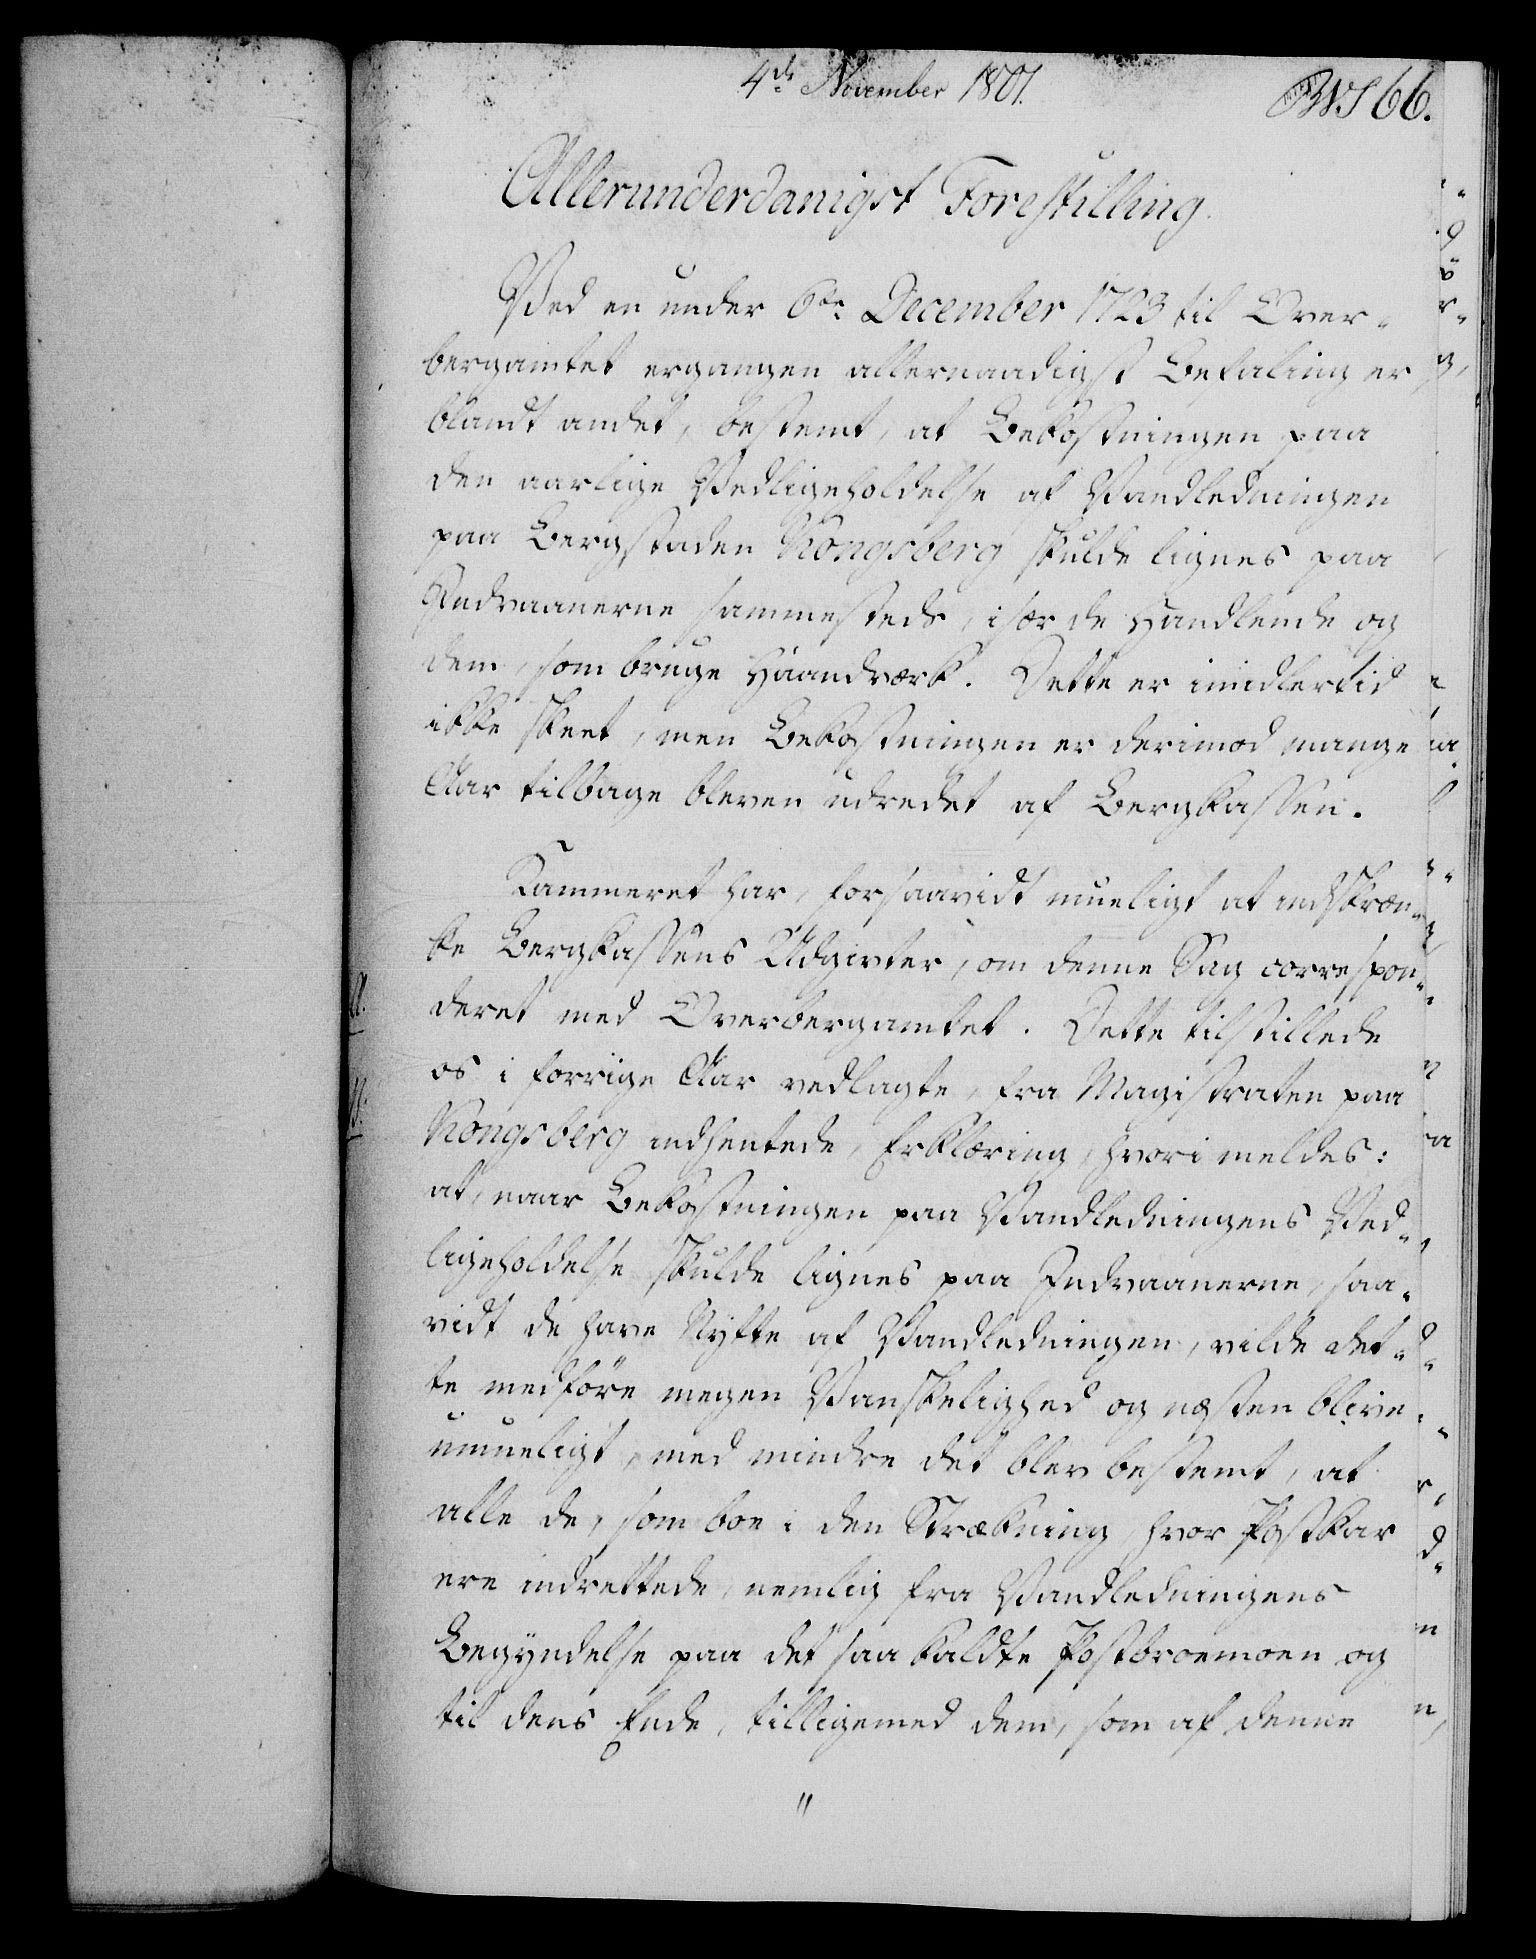 4de November 1801.
66.
Allerunderdanigst Forestilling.
Ved en under 6te December 1723 til Over-
bergamtet ergangen allernaadigst Befaling er
blandt andet, bestemt, at Bekostningen paa
den aarlige Vedligeholdelse af Vandledningen
paa Bergstaden Kongsberg skulde lignes paa
Indvaanerne sammesteds, især de Handlende og
dem, som bruge Haandværk. Dette er imidlertid
ikke skeet, men Bekostningen er derimod mange
Aar tilbage bleven udredet af Bergkassen.
Kammeret har, forsaavidt mueligt at indskræn-
ke Bergkassens Udgivter, om denne Sag correspon-
deret med Overbergamtet. Dette tilstillede
os i forrige Aar vedlagte, fra Magistraten paa
Kongsberg indhentede, Erklæring, hvori meldes:
at, naar Bekostningen paa Vandledningens Ved-
ligeholdelse skulde lignes paa Indvaanerne, saa-
vidt de have Nytte af Vandledningen, vilde det-
te medföre megen Vanskelighed og næsten blive
umueligt, med mindre det blev bestemt, at
alle de, som boe i den Strækning, hvor Postkar
ere indrettede, nemlig fra Vandledningens
Begyndelse paa det saa kaldte Postbroemoen og
til dens Ende, tilligemed dem, som af denne
"